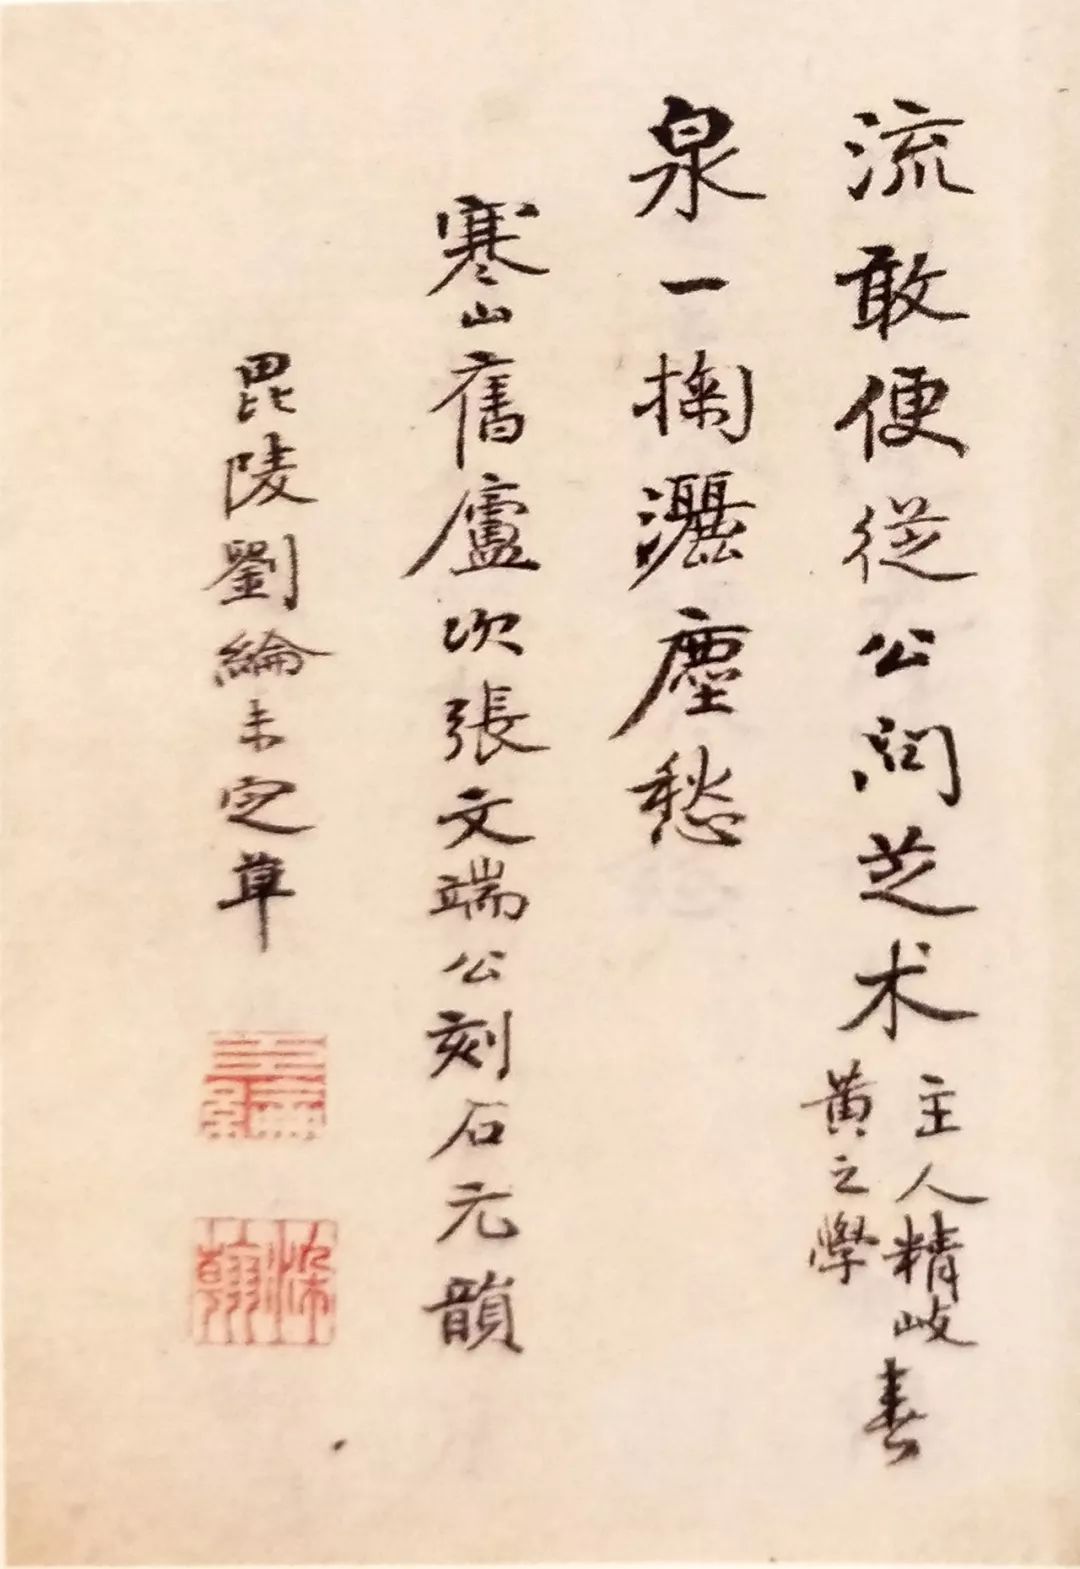 流敢便從公問芝术主人精岐黄之學春
泉一掬灑塵愁
寒山舊廬次張文端公刻石元韻
毘陵劉綸未定草